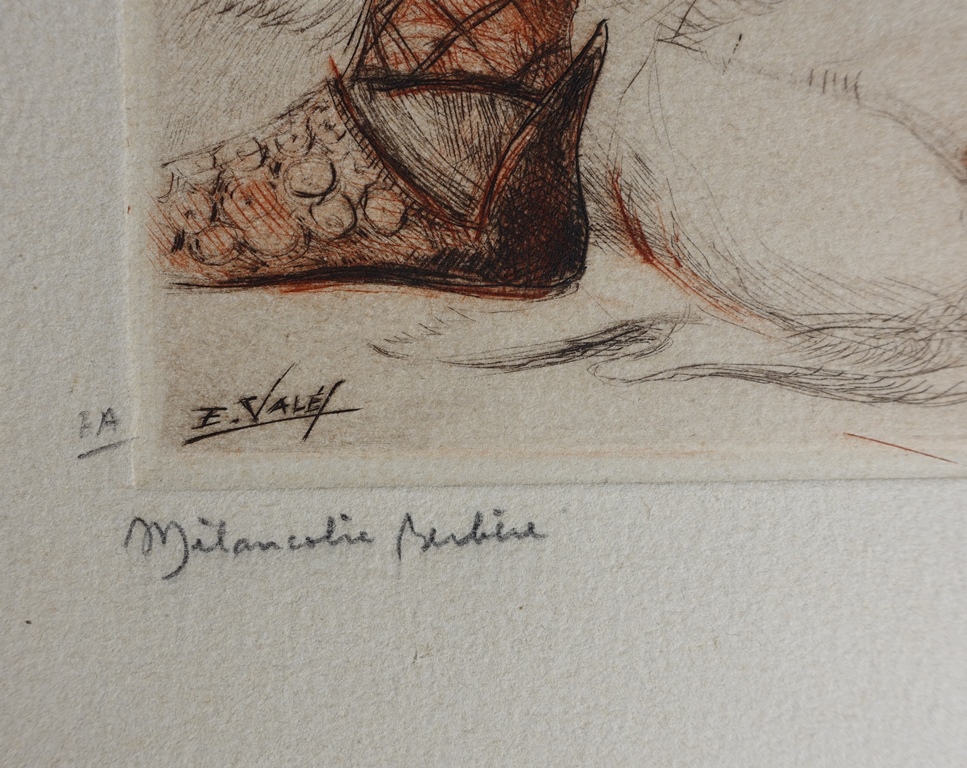 E. VALÉS
EA
Mélancolie Berbère